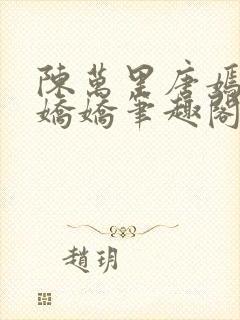 陳萬里唐嫣
嬌嬌筆趣閣
趙玥